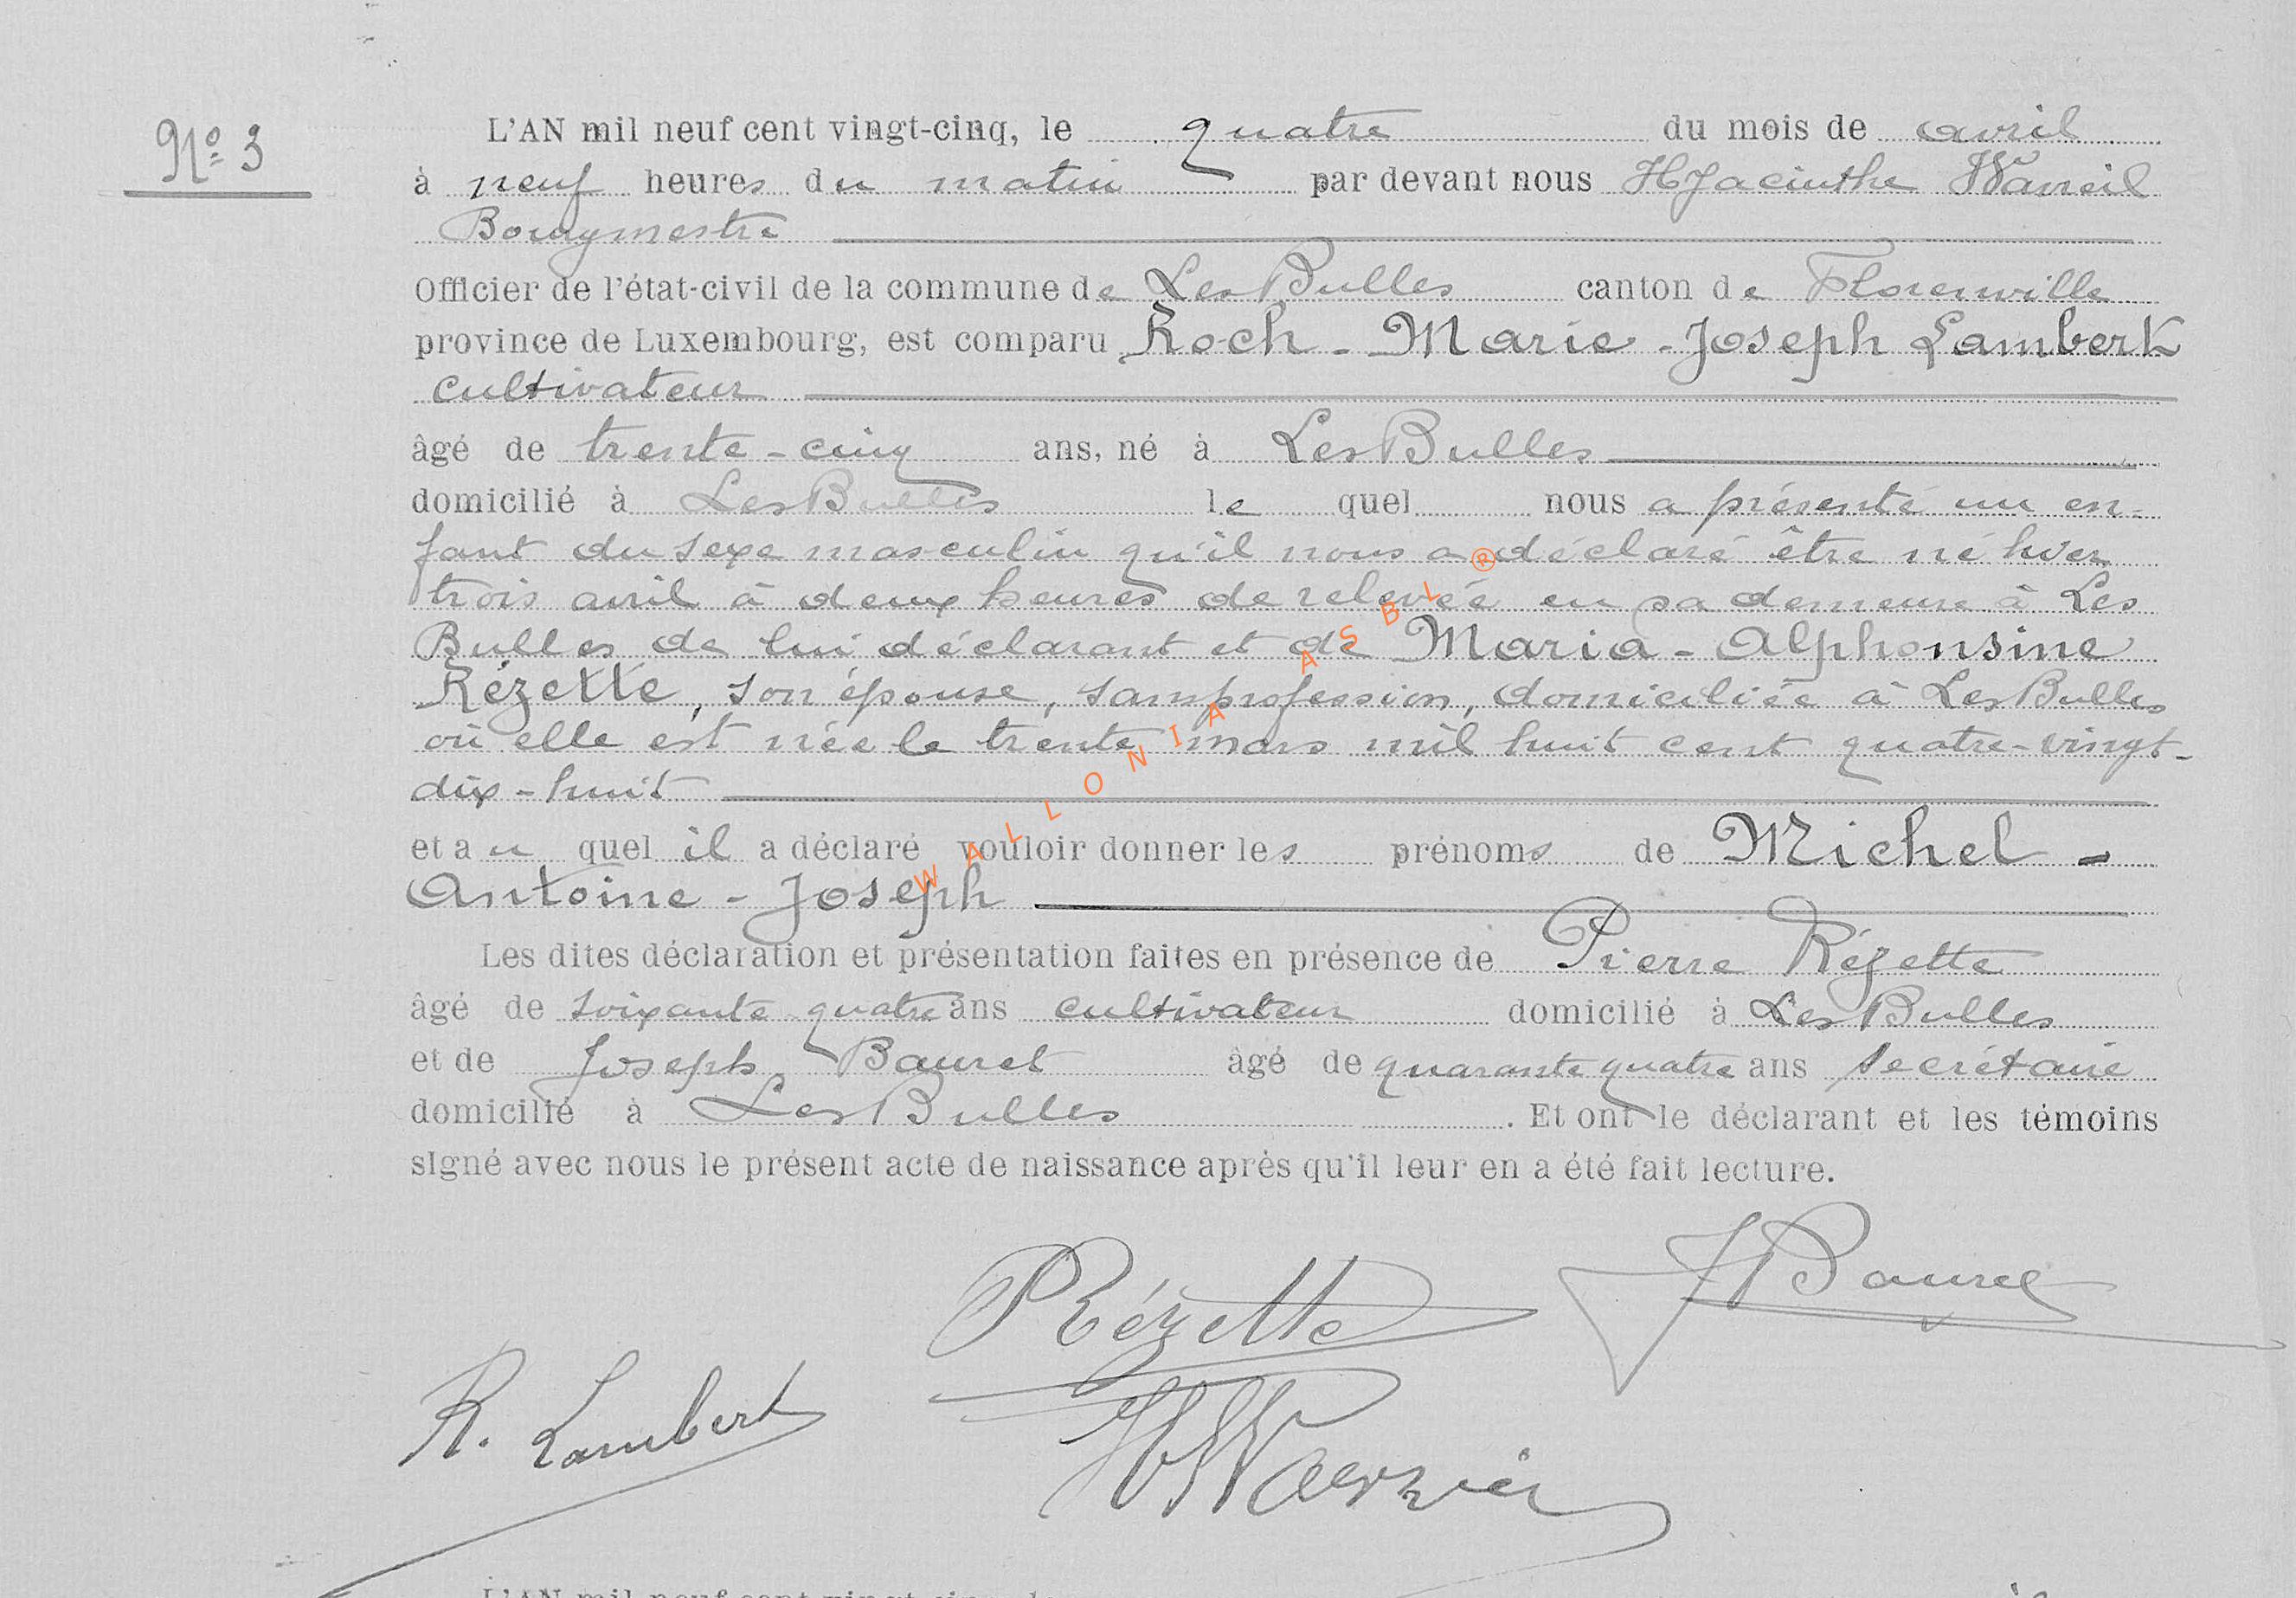 N° 3
L'AN mil neuf cent vingt-cinq, le quatre du mois de avril
à neuf heures du matin par devant nous Hyacinthe
Bourgmestre
Officier de l'état-civil de la commune de Les Bulles canton de Florenville
province de Luxembourg, est comparu Roch - Marie - Joseph Lambert
cultivateur
âgé de trente-cinq ans, né à Les Bulles
domicilié à Les Bulles le quel nous a présenté un en-
fant du sexe masculin qu'il nous a déclaré être né hier
trois avril à deux heures de relevée en sa demeure à Les
Bulles de lui déclarant et de Maria - Alphonsine
Rézette, son épouse, sans profession, domiciliée à Les Bulles
où elle est née le trente mars mil huit cent quatre-vingt-
dix-huit
et au quel il a déclaré vouloir donner les prénoms de Michel -
Antoine - Joseph
Les dites déclaration et présentation faites en présence de Pierre Rézette
âgé de soixante quatre ans cultivateur domicilié à Les Bulles
et de Joseph Bauret âgé de quarante quatre ans secrétaire
domicilié à Les Bulles . Et ont le déclarant et les témoins
signé avec nous le présent acte de naissance après qu'il leur en a été fait lecture.
WALLONIA ASBL ®
PRézette
JBauret
R. Lambert
L'AN mil neuf cent vingt-cinq, le